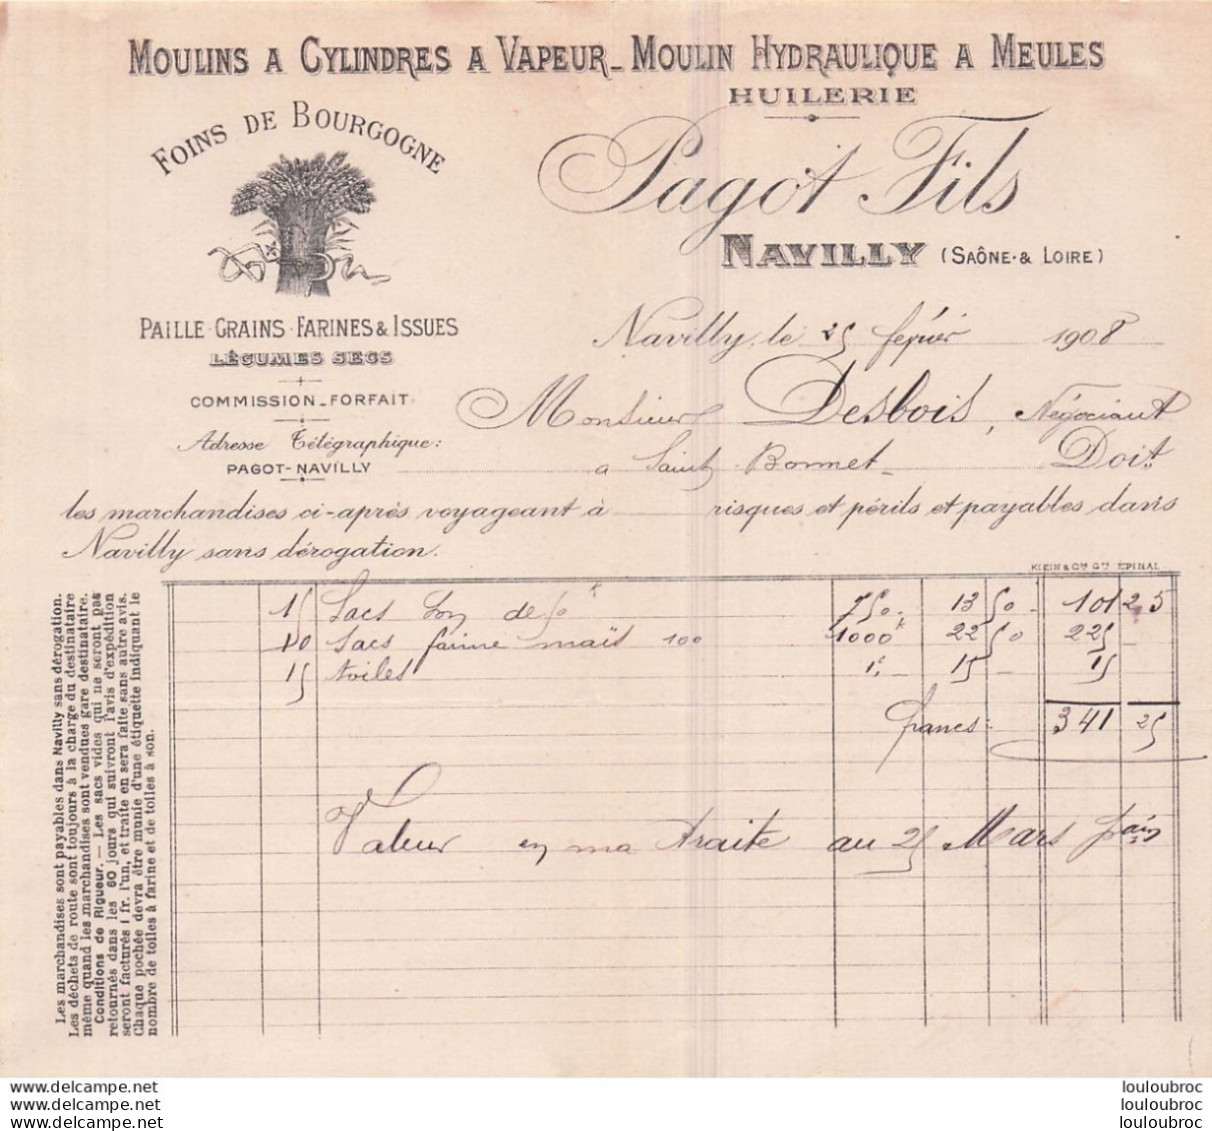 MOULINS A CYLINDRES A VAPEUR_MOULIN HYDRAULIQUE A MEULES
HUILERIE
FOINS DE BOURGOGNE
Pagot Fils
NAVILLY (SAÔNE-& LOIRE)
PAILLE-GRAINS-FARINES & ISSUES
LÉGUMES SECS
COMMISSION_FORFAIT
Adresse Télégraphique:
PAGOT-NAVILLY
Navilly, le 25 février 1908
Monsieur Desbois, Négociant
a Saint Bonnet Doit
les marchandises ci-après voyageant à risques et périls et payables dans
Navilly sans dérogation.
KLEIN & Cie Gr. ÉPINAL
15 Sacs Son de 50k 750 - 13 50 - 101 25
10 Sacs farine maïs 100 1000k 22 50 225 -
15 toiles 1f 15 - 15
francs: 341 25
Valeur en ma traite au 25 Mars
Les marchandises sont payables dans Navilly sans dérogation.
Les déchets de route sont toujours à la charge du destinataire
même quand les marchandises sont vendues gare destinataire.
Conditions de Rigueur. — Les sacs vides qui ne seront pas
retournés dans les 60 jours qui suivront l'avis d'expédition
seront facturés 1 fr. l'un, et traite en sera faite sans autre avis.
Chaque pochée devra être munie d'une étiquette indiquant le
nombre de toiles à farine et de toiles à son.
www.delcampe.net
www.delcampe.net
www.delcampe.net
louloubroc
louloubroc
louloubroc